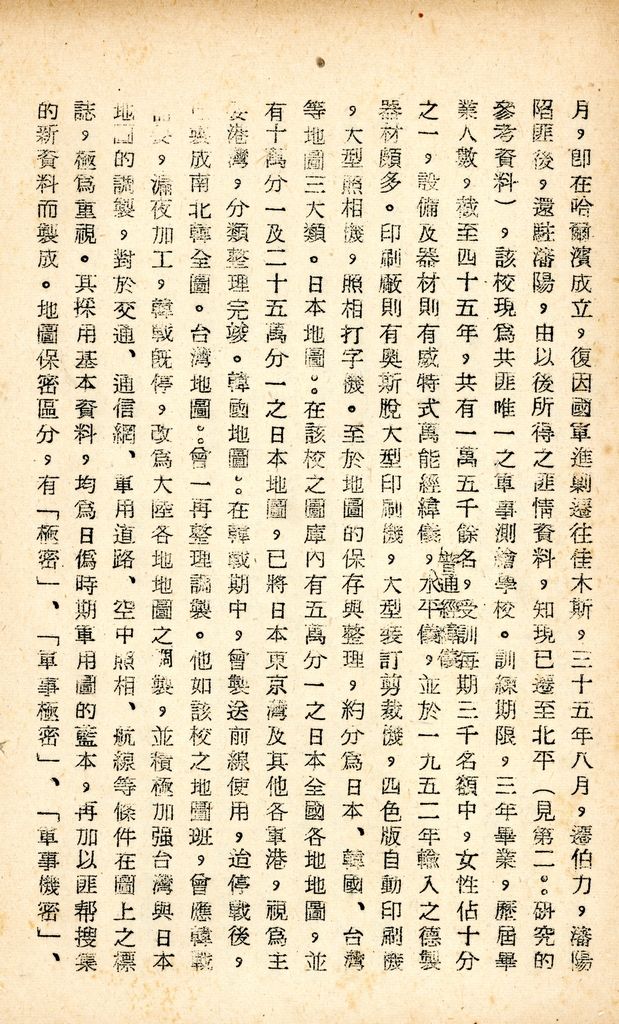 月，卽在哈爾濱成立，復因國軍進剿遷往佳木斯，三十五年八月，遷伯力，瀋陽
陷匪後，還駐瀋陽，由以後所得之匪情資料，知現已遷至北平（見第二。。研究的
參考資料），該校現爲共匪唯一之軍事測繪學校。訓練期限，三年畢業，歷屆畢
業人數，截至四十五年，共有一萬五千餘名，受訓每期三千名額中，女性佔十分
之一，設備及器材則有威特式萬能經緯儀，普通經緯儀，水平儀，並於一九五二年輸入之德製
器材頗多。印刷廠則有奥斯脫大型印刷機，大型裝訂剪裁機，四色版自動印刷機
，大型照相機，照相打字機。至於地圖的保存與整理，約分爲日本、韓國、台灣
等地圖三大類。日本地圖。。在該校之圖庫內有五萬分一之日本全國各地地圖，並
有十萬分一及二十五萬分一之日本地圖，已將日本東京灣及其他各軍港，視爲主
要港灣，分類整理完竣。韓國地圖。。在韓戰期中，曾製送前線使用，迨停戰後，
製成南北韓全圖。台灣地圖。。曾一再整理調製。他如該校之地圖班，曾應韓戰
，漏夜加工，韓戰旣停，改爲大陸各地地圖之調製，並積極加强台灣與日本
地圖的調製，對於交通、通信網、軍用道路、空中照相、航線等條件在圖上之標
誌，極爲重視。其採用基本資料，均爲日僞時期軍用圖的藍本，再加以匪幫搜集
的新資料而製成。地圖保密區分，有「極密」、「軍事極密」、「軍事機密」、